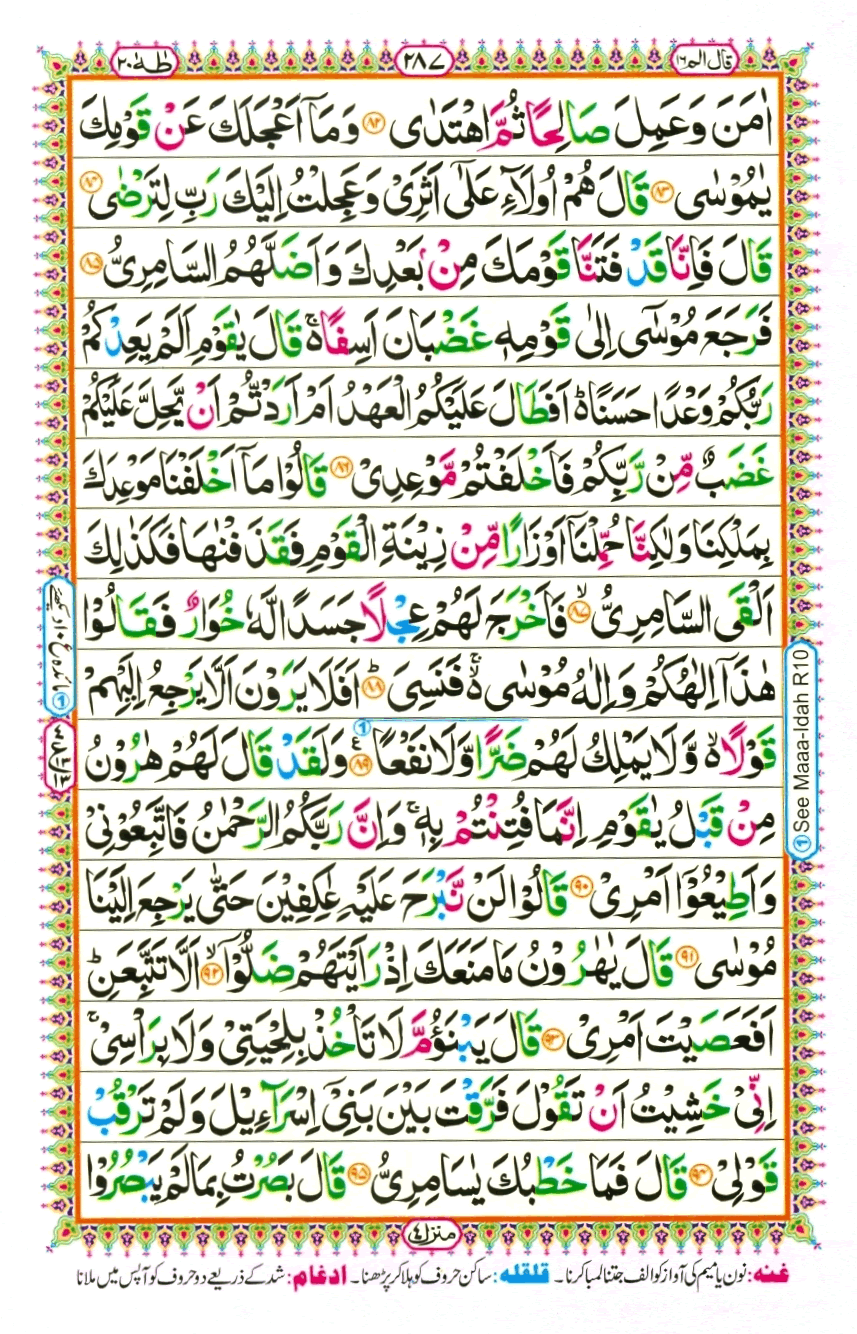 قال الم ١٦ ٢٨٧ طٰهٰ ٢٠
اٰمَنَ وَعَمِلَ صَالِحًا ثُمَّ اهْتَدٰى ﴿٨٢﴾ وَمَاۤ اَعْجَلَكَ عَنْ قَوْمِكَ
يٰمُوْسٰى ﴿٨٣﴾ قَالَ هُمْ اُولَآءِ عَلٰٓى اَثَرِىْ وَعَجِلْتُ اِلَيْكَ رَبِّ لِتَرْضٰى ﴿٨٤﴾
قَالَ فَاِنَّا قَدْ فَتَنَّا قَوْمَكَ مِنْۢ بَعْدِكَ وَاَضَلَّهُمُ السَّامِرِىُّ ﴿٨٥﴾
فَرَجَعَ مُوْسٰٓى اِلٰى قَوْمِهٖ غَضْبَانَ اَسِفًا ۚ۬ قَالَ يٰقَوْمِ اَلَمْ يَعِدْكُمْ
رَبُّكُمْ وَعْدًا حَسَنًا ۬ؕ اَفَطَالَ عَلَيْكُمُ الْعَهْدُ اَمْ اَرَدْتُّمْ اَنْ يَّحِلَّ عَلَيْكُمْ
غَضَبٌ مِّنْ رَّبِّكُمْ فَاَخْلَفْتُمْ مَّوْعِدِىْ ﴿٨٦﴾ قَالُوْا مَاۤ اَخْلَفْنَا مَوْعِدَكَ
بِمَلْكِنَا وَلٰكِنَّا حُمِّلْنَاۤ اَوْزَارًا مِّنْ زِيْنَةِ الْقَوْمِ فَقَذَفْنٰهَا فَكَذٰلِكَ
اَلْقَى السَّامِرِىُّ ۙ﴿٨٧﴾ فَاَخْرَجَ لَهُمْ عِجْلًا جَسَدًا لَّهٗ خُوَارٌ فَقَالُوْا
هٰذَاۤ اِلٰهُكُمْ وَاِلٰهُ مُوْسٰى ۬ۚ فَنَسِىَ ؕ﴿٨٨﴾ اَفَلَا يَرَوْنَ اَلَّا يَرْجِعُ اِلَيْهِمْ
قَوْلًا ۬ۙ وَّلَا يَمْلِكُ لَهُمْ ضَرًّا وَّلَا نَفْعًا ﴿٨٩﴾ وَلَقَدْ قَالَ لَهُمْ هٰرُوْنُ
مِنْ قَبْلُ يٰقَوْمِ اِنَّمَا فُتِنْتُمْ بِهٖ ۚ وَاِنَّ رَبَّكُمُ الرَّحْمٰنُ فَاتَّبِعُوْنِىْ
وَاَطِيْعُوْۤا اَمْرِىْ ﴿٩٠﴾ قَالُوْا لَنْ نَّبْرَحَ عَلَيْهِ عٰكِفِيْنَ حَتّٰى يَرْجِعَ اِلَيْنَا
مُوْسٰى ﴿٩١﴾ قَالَ يٰهٰرُوْنُ مَا مَنَعَكَ اِذْ رَاَيْتَهُمْ ضَلُّوْۤا ۙ﴿٩٢﴾ اَلَّا تَتَّبِعَنِ ؕ
اَفَعَصَيْتَ اَمْرِىْ ﴿٩٣﴾ قَالَ يَبْنَؤُمَّ لَا تَاْخُذْ بِلِحْيَتِىْ وَلَا بِرَاْسِىْ ۚ
اِنِّىْ خَشِيْتُ اَنْ تَقُوْلَ فَرَّقْتَ بَيْنَ بَنِىْۤ اِسْرَآءِيْلَ وَلَمْ تَرْقُبْ
قَوْلِىْ ﴿٩٤﴾ قَالَ فَمَا خَطْبُكَ يٰسَامِرِىُّ ﴿٩٥﴾ قَالَ بَصُرْتُ بِمَا لَمْ يَبْصُرُوْا
١ See Maaa-Idah R10
منزل ٤
غنه: نون یا میم کی آواز کو الف جتنا لمبا کرنا۔ قلقله: ساکن حروف کو ہلا کر پڑھنا۔ ادغام: شد کے ذریعے دو حروف کو آپس میں ملانا